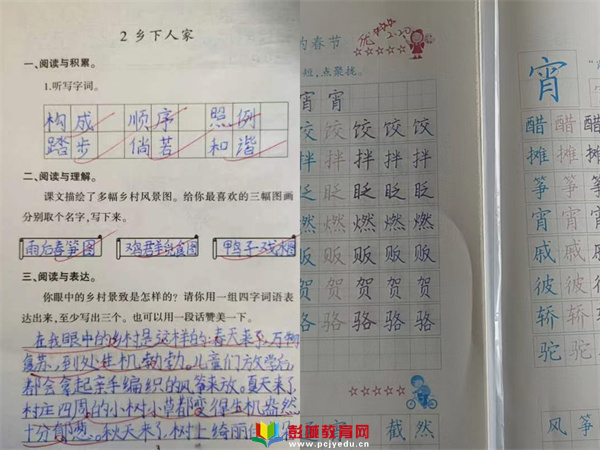 2 乡下人家
一、阅读与积累。
1.听写字词。
构成 顺序 照例
踏步 倘若 和谐
二、阅读与理解。
课文描绘了多幅乡村风景图。给你最喜欢的三幅图画
分别取个名字,写下来。
雨后春笋图 鸡群觅食图 鸭子戏水图
三、阅读与表达。
你眼中的乡村景致是怎样的?请你用一组四字词语表
达出来,至少写出三个。也可以用一段话赞美一下。
在我眼中的乡村是这样的:春天来了,万物
复苏,到处生机勃勃。儿童们放学后,
都会拿起亲手编织的风筝来放。夏天来了
村庄四周的小树小草都变得生机盎然
十分。秋天来了,树上绮丽
的春节
短,点聚拢。
宵 宵
饺 饺 饺 饺
拌 拌 拌 拌
眨 眨 眨 眨
燃 燃 燃 燃
贩 贩 贩 贩
贺 贺 贺 贺
骆 骆 骆 骆
截 然
宵
醋 醋 醋
摊 摊 摊
筝 筝 筝
戚 戚 戚
彼 彼 彼
轿 轿 轿
驼 驼 驼
风 筝
彭城教育网
www.pcjyedu.cn